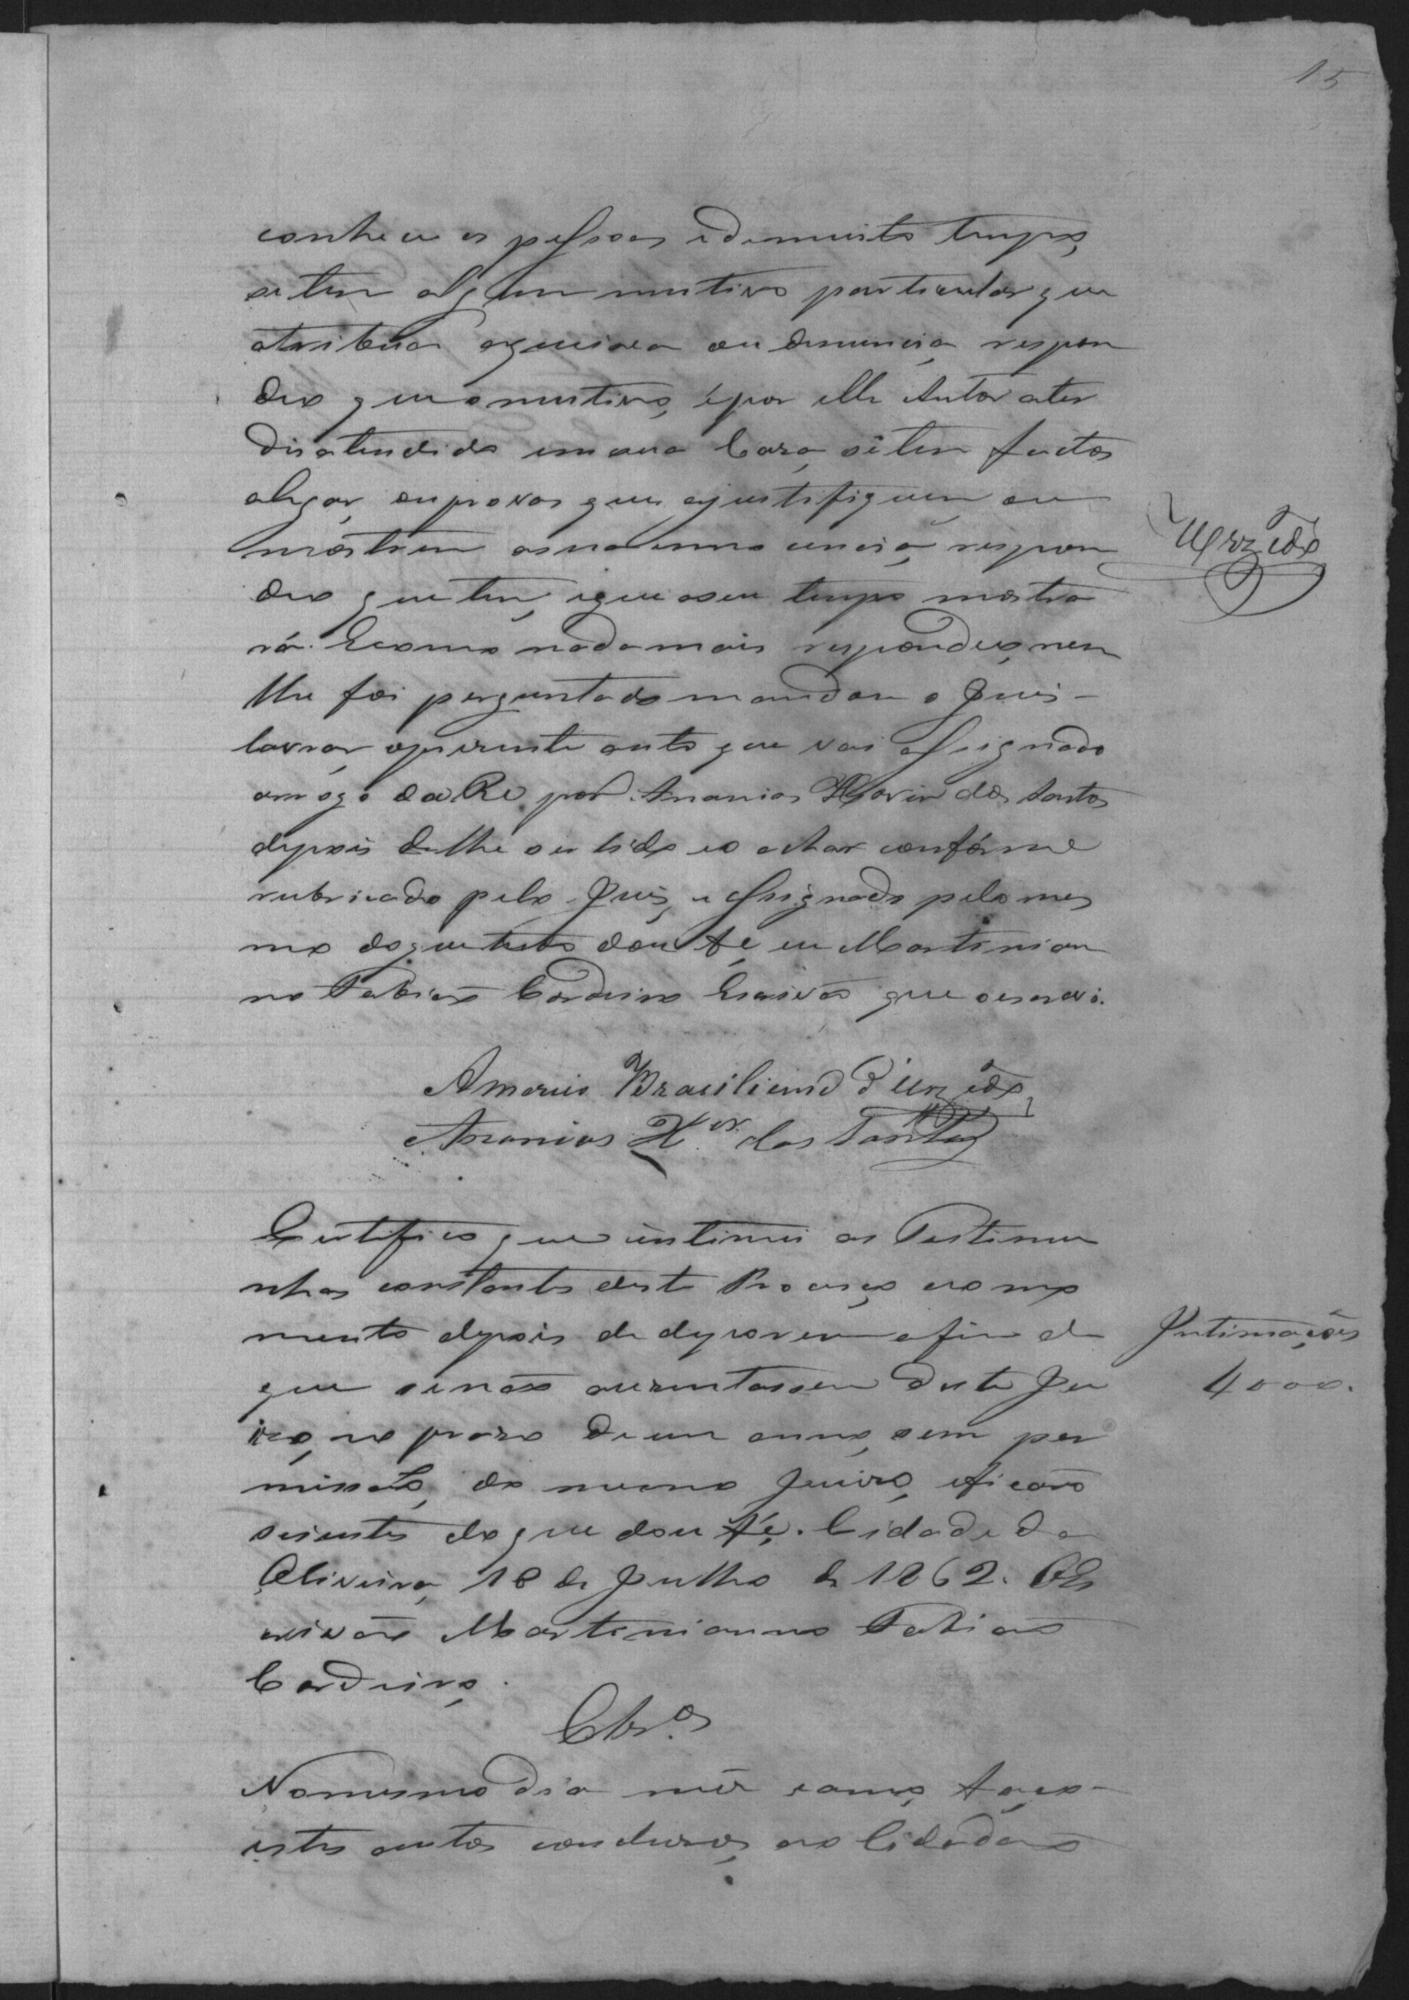 15
conhece as pessoas e de muito tempo,
se tem algum mutivo particular que
atribua a queixa ou denuncia, respon
deo que o mutivo, é por elle Autor a ter
disatendido em sua Caza, si tem factos
alegar, ou provas que a justifiquem ou
móstrem a sua innocencia, respon
deo que tem, e que a seu tempo mostra
rá. E como nada mais respondeo, nem
lhe foi perguntado mandou o Juis
lavrar o prezente auto que vai assignado
a rogo da Ré por Ananias Xavier dos Santos
depois de lhe ser lido e o achar confórme
rubricado pelo Juis, e assignado pelo mes
mo do que tudo dou fé, eu Martinian
no Tobias Cordeiro Escrivão que o escrevi.
Urzedo
Americo Brasiliense d'Urzedo
Ananias X.er dos Santos
Certifico que intimei as Testimu
nhas constantes deste Processo
mento depois de deporem afim de
que se não auzentassem deste Ju
izo, no prazo de um anno, sem per
missão, do mesmo Juizo, e ficarão
scientes do que dou fé. Cidade da
Oliveira, 18 de Julho de 1862. O Es
crivão Martinianno Tobias
Cordeiro.
Intimações
4000.
Cls.os
No mesmo dia mêz e anno, faço
estes autos concluzos, ao Cidadão